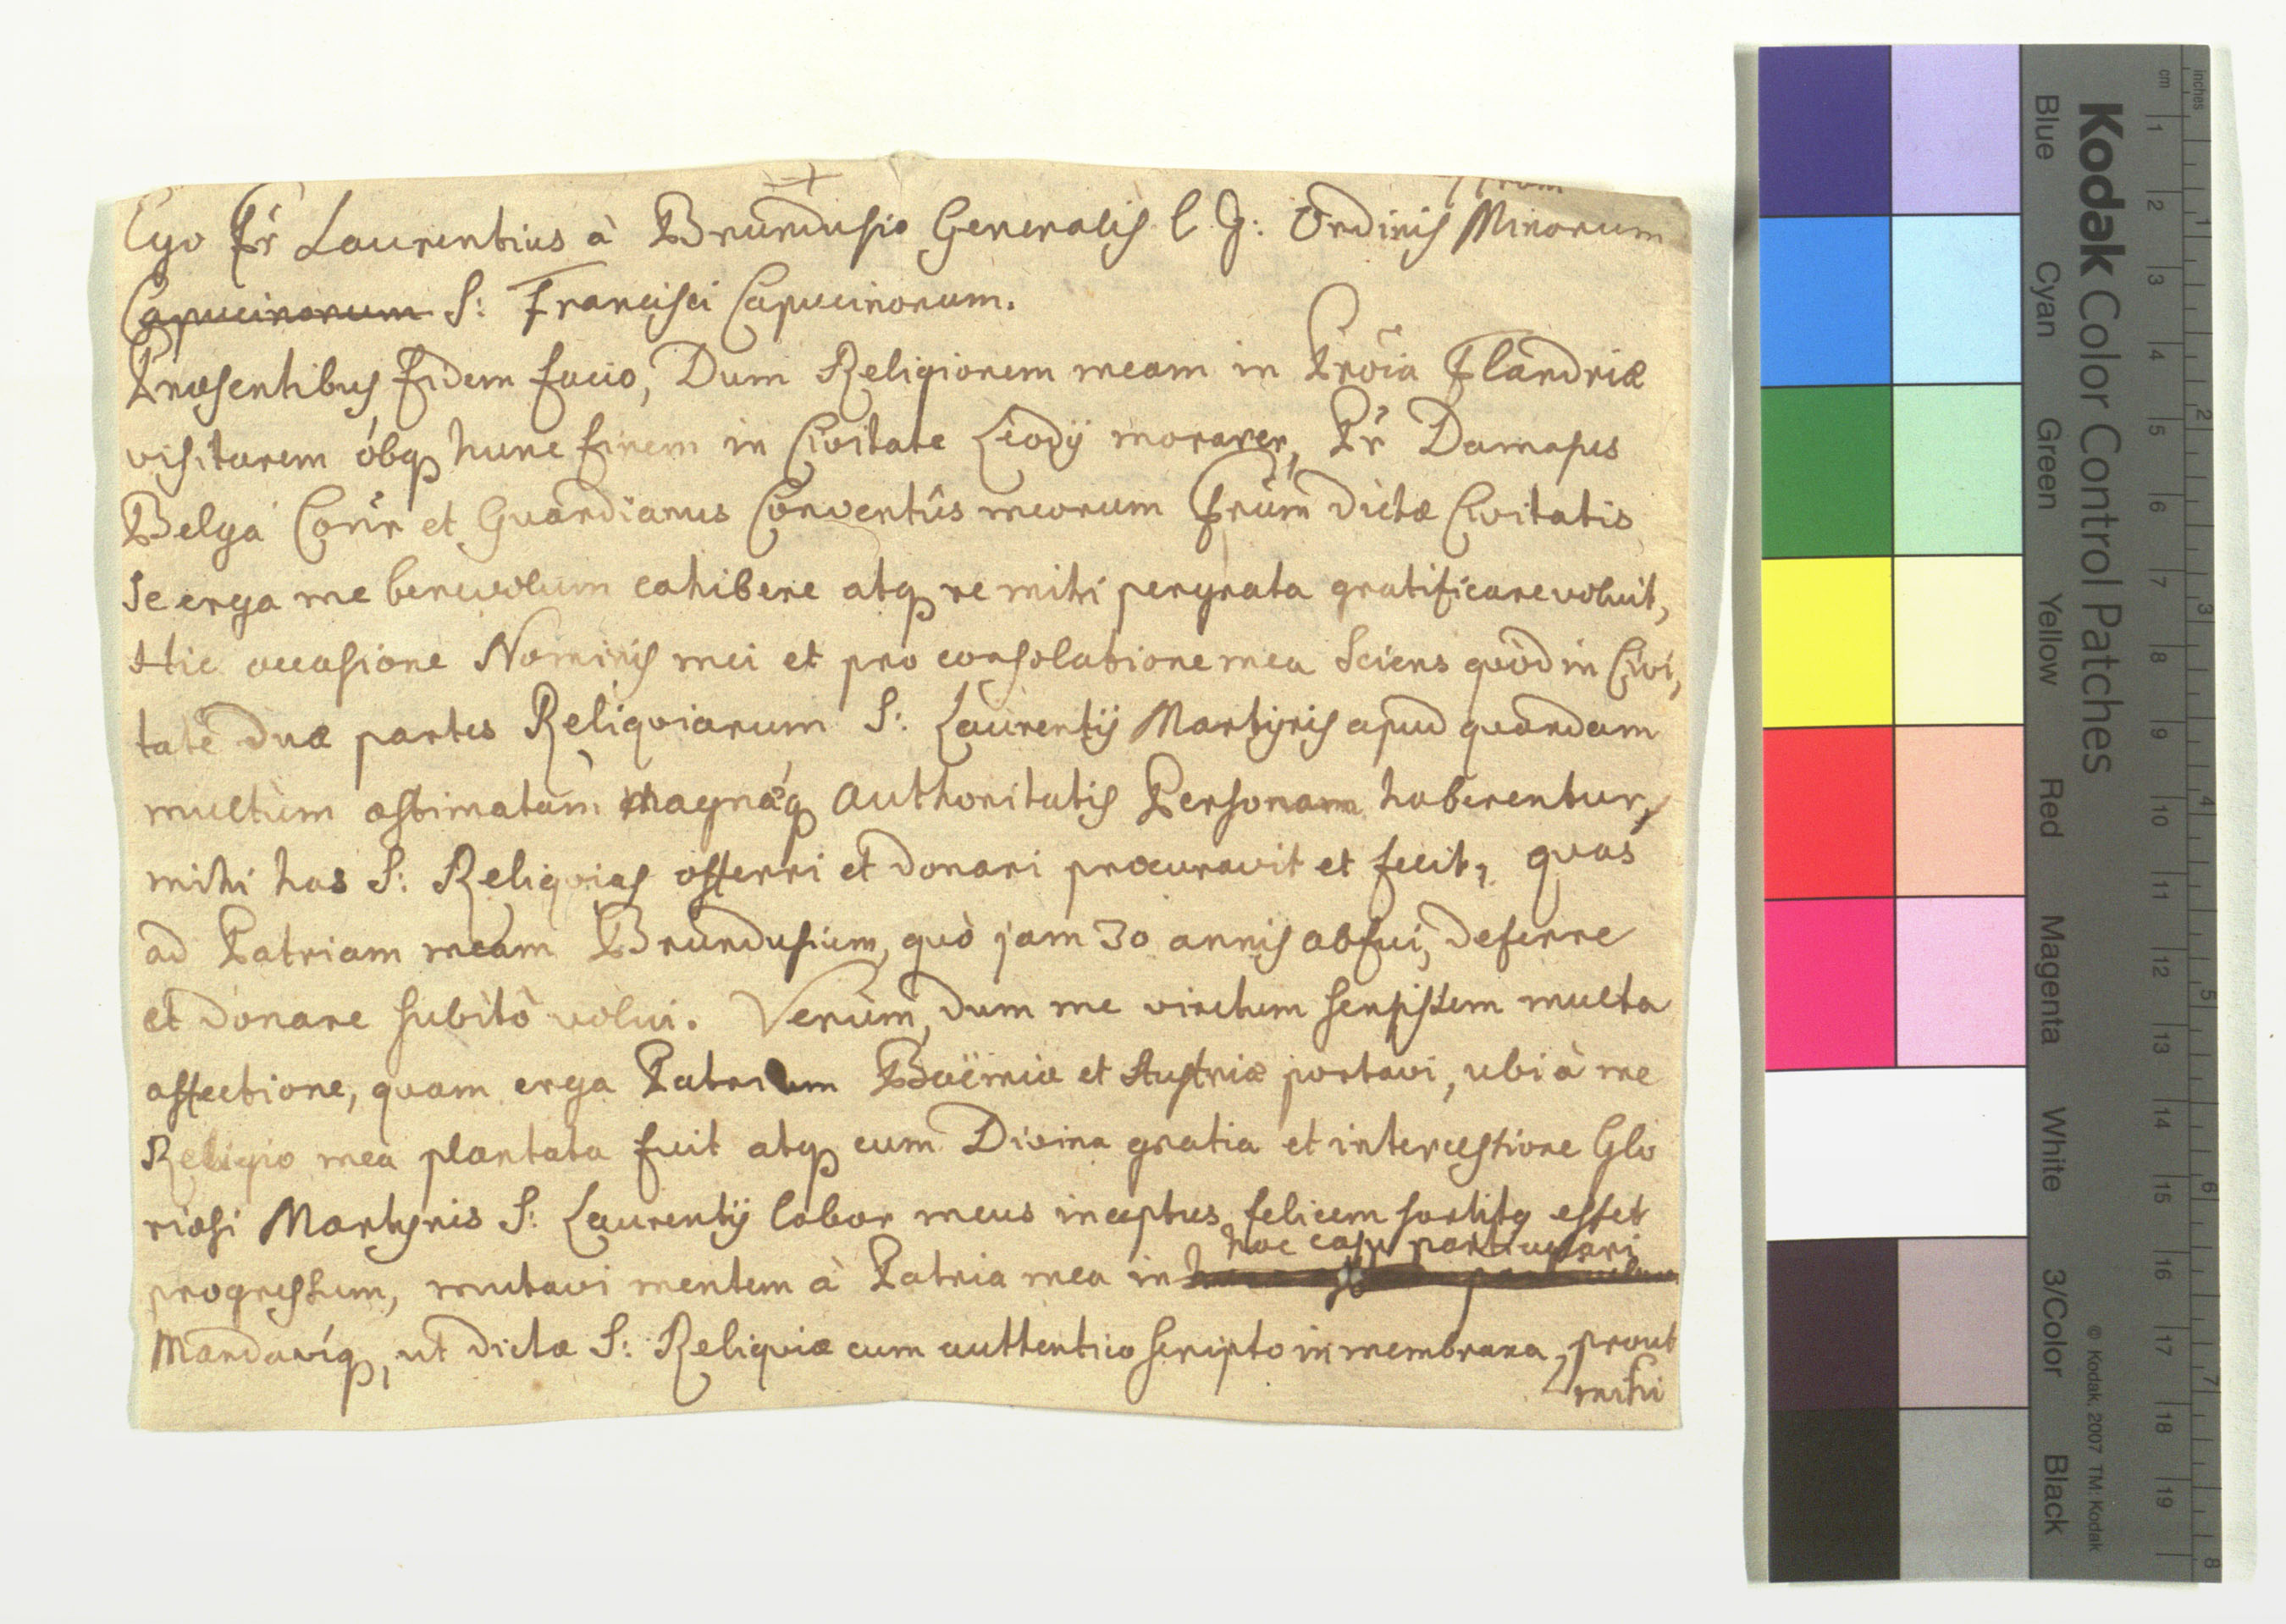 Frum
Ego Fr Laurentius à Brundusio Generalis l. G: Ordinis Minorum
Capucinorum S: Francisci Capucinorum.
Præsentibus fidem facio, Dum Religionem meam in Proia Flandriæ
visitarem óbq hunc finem in Civitate Leodij morarer, Pr Damasus
Belga Conr et Guardianus Conventûs meorum Frum dictæ Civitatis
Se erga me benevolum exhibere atq re mihi pergrata gratificare voluit,
Hic occasione Nominis mei et pro consolatione mea Sciens quòd in Civi,
tate duæ partes Reliqviarum S: Laurentij Martyris apud quandam
multùm æstimatam magnæq Authoritatis Personam haberentur,
mihi has S: Reliqvias offerri et donari procuravit et fecit, quas
ad Patriam meam Brundusium, quò jam 30 annis abfui, deferre
et donare subitò volui. Verùm, dum me victum sensissem multa
affectione, quam erga Patriam Boëmiæ et Austriæ portavi, ubi à me
Religio mea plantata fuit atq cum Divina gratia et intercessione Glo
riosi Martyris S: Laurentij labor meus inceptus felicem sortitq esset
hoc casu particulari
progressum, mutavi mentem à Patria mea in
Mandavíq, ut dictæ S: Reliqviæ cum authentico scripto in membrana, prout
mihi
Kodak Color Control Patches
Blue Cyan Green Yellow Red Magenta White 3/Color Black
© Kodak, 2007 TM: Kodak
cm 1 2 3 4 5 6 7 8 9 10 11 12 13 14 15 16 17 18 19
inches 1 2 3 4 5 6 7 8